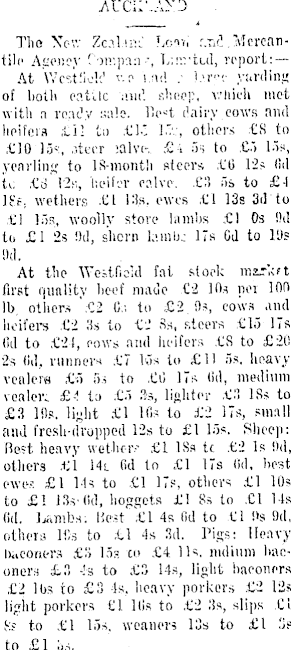 AUCKLAND
The New Zealand Loan and Mercan-
tile Agency Company, Limited, report:—
At Westfield we had a large yarding
of both cattle and sheep, which met
with a ready sale. Best dairy cows and
heifers £11 to £15 15s, others £8 to
£10 15s, steer calve. £4 5s to £5 15s,
yearling to 18-month steers £6 12s 6d
to £8 12s, heifer calve. £3 5s to £4
18s, wethers £1 13s, ewes £1 13s 3d to
£1 15s, woolly store lambs £1 0s 9d
to £1 2s 9d, shorn lambs 17s 6d to 19s
9d.
At the Westfield fat stock market
first quality beef made £2 10s per 100
lb, others £2 6s to £2 9s, cows and
heifers £2 3s to £2 8s, steers £15 17s
6d to £24, cows and heifers £8 to £20
2s 6d, runners £7 15s to £11 5s, heavy
vealers £5 5s to £6 17s 6d, medium
vealers £4 to £5 3s, lighter £3 18s to
£3 19s, light £1 16s to £2 17s, small
and fresh-dropped 12s to £1 15s. Sheep:
Best heavy wethers £1 18s to £2 1s 9d,
others £1 14s 6d to £1 17s 6d, best
ewes £1 14s to £1 17s, others £1 10s
to £1 13s 6d, hoggets £1 8s to £1 14s
6d. Lambs: Best £1 4s 6d to £1 9s 9d,
others 16s to £1 4s 3d. Pigs: Heavy
baconers £3 15s to £4 11s, mdium bac-
oners £3 4s to £3 14s, light baconers
£2 16s to £3 4s, heavy porkers £2 12s
light porkers £1 16s to £2 3s, slips £1
8s to £1 15s, weaners 13s to £1
to £1